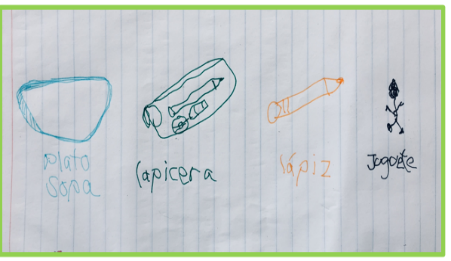 plato
Sopa
lapicera
lápiz
Jogoete